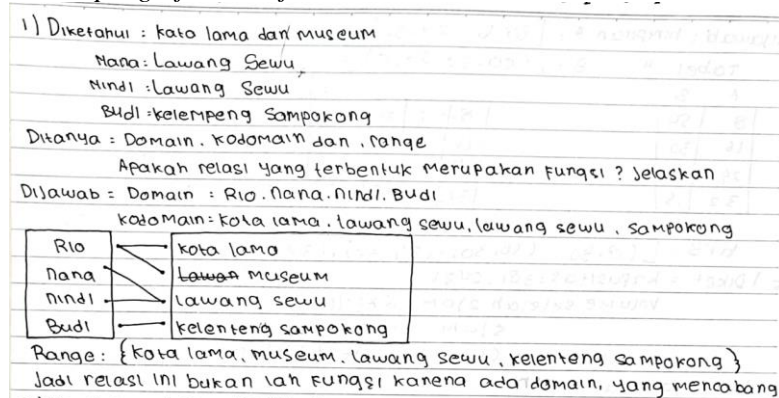 1) Diketahui : kota lama dan museum
Nana : Lawang Sewu
Nindi : Lawang Sewu
Budi : kelempeng Sampokong
Ditanya : Domain . kodomain dan , range
Apakah relasi yang terbentuk merupakan Fungsi ? Jelaskan
Dijawab = Domain : Rio . nana . nindi . Budi
kodomain = kota lama . lawang sewu , lawang sewu , sampokong
Rio kota lama
nana Lawan museum
nindi lawang sewu
Budi kelenteng sampokong
Range : {kota lama, museum. Lawang sewu , kelenteng sampokong}
Jadi relasi ini bukan lah Fungsi karena ada domain, yang mencabang